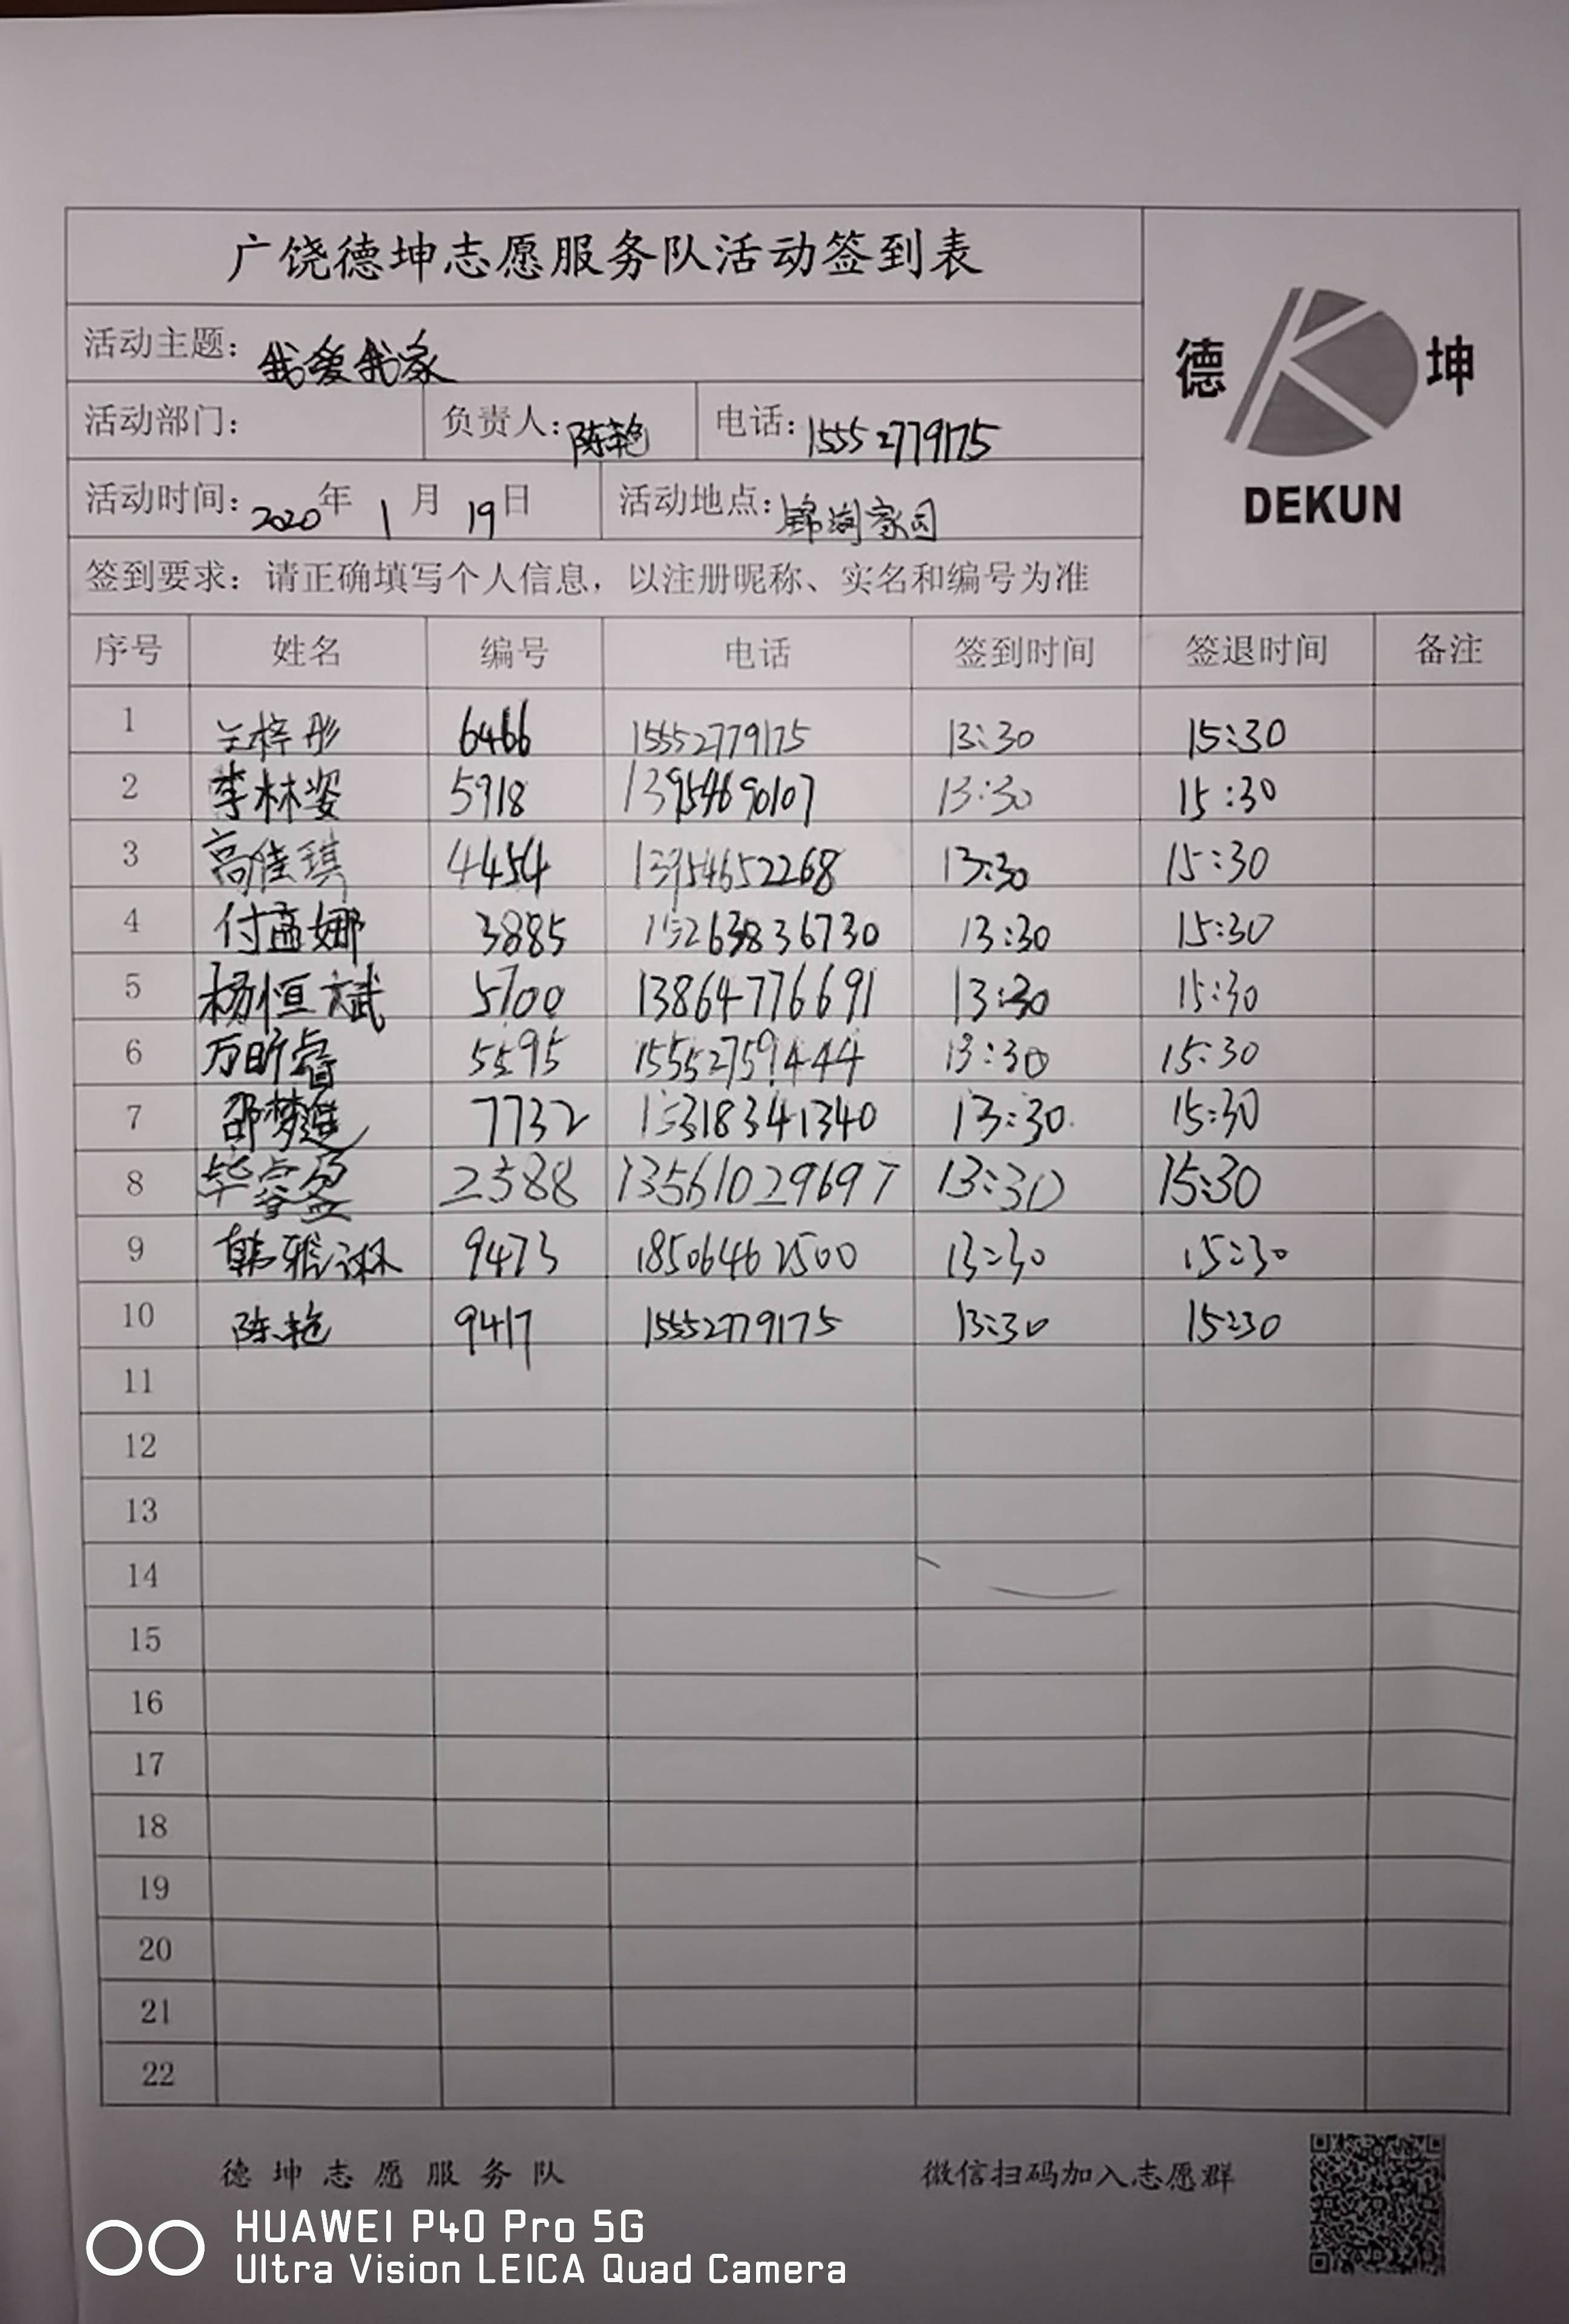 广饶德坤志愿服务队活动签到表
德 坤
DEKUN
活动主题：我爱我家
活动部门： 负责人：陈艳 电话：15552779175
活动时间：2020年 1 月 19日 活动地点：锦湖家园
签到要求：请正确填写个人信息，以注册昵称、实名和编号为准
序号 姓名 编号 电话 签到时间 签退时间 备注
1 王梓彤 6466 15552779175 13:30 15:30
2 李林姿 5918 13954690107 13:30 15:30
3 高佳琪 4454 13954652268 13:30 15:30
4 付孟娜 3885 15263836730 13:30 15:30
5 杨恒斌 5700 13864776691 13:30 15:30
6 万昕睿 5595 15552759444 13:30 15:30
7 邵梦 7732 15318341340 13:30 15:30
8 毕睿盈 2388 13561029697 13:30 15:30
9 韩雅琳 9473 18506462500 13:30 15:30
10 陈艳 9417 15552779175 13:30 15:30
11
12
13
14
15
16
17
18
19
20
21
22
德坤志愿服务队 微信扫码加入志愿群
HUAWEI P40 Pro 5G
Ultra Vision LEICA Quad Camera